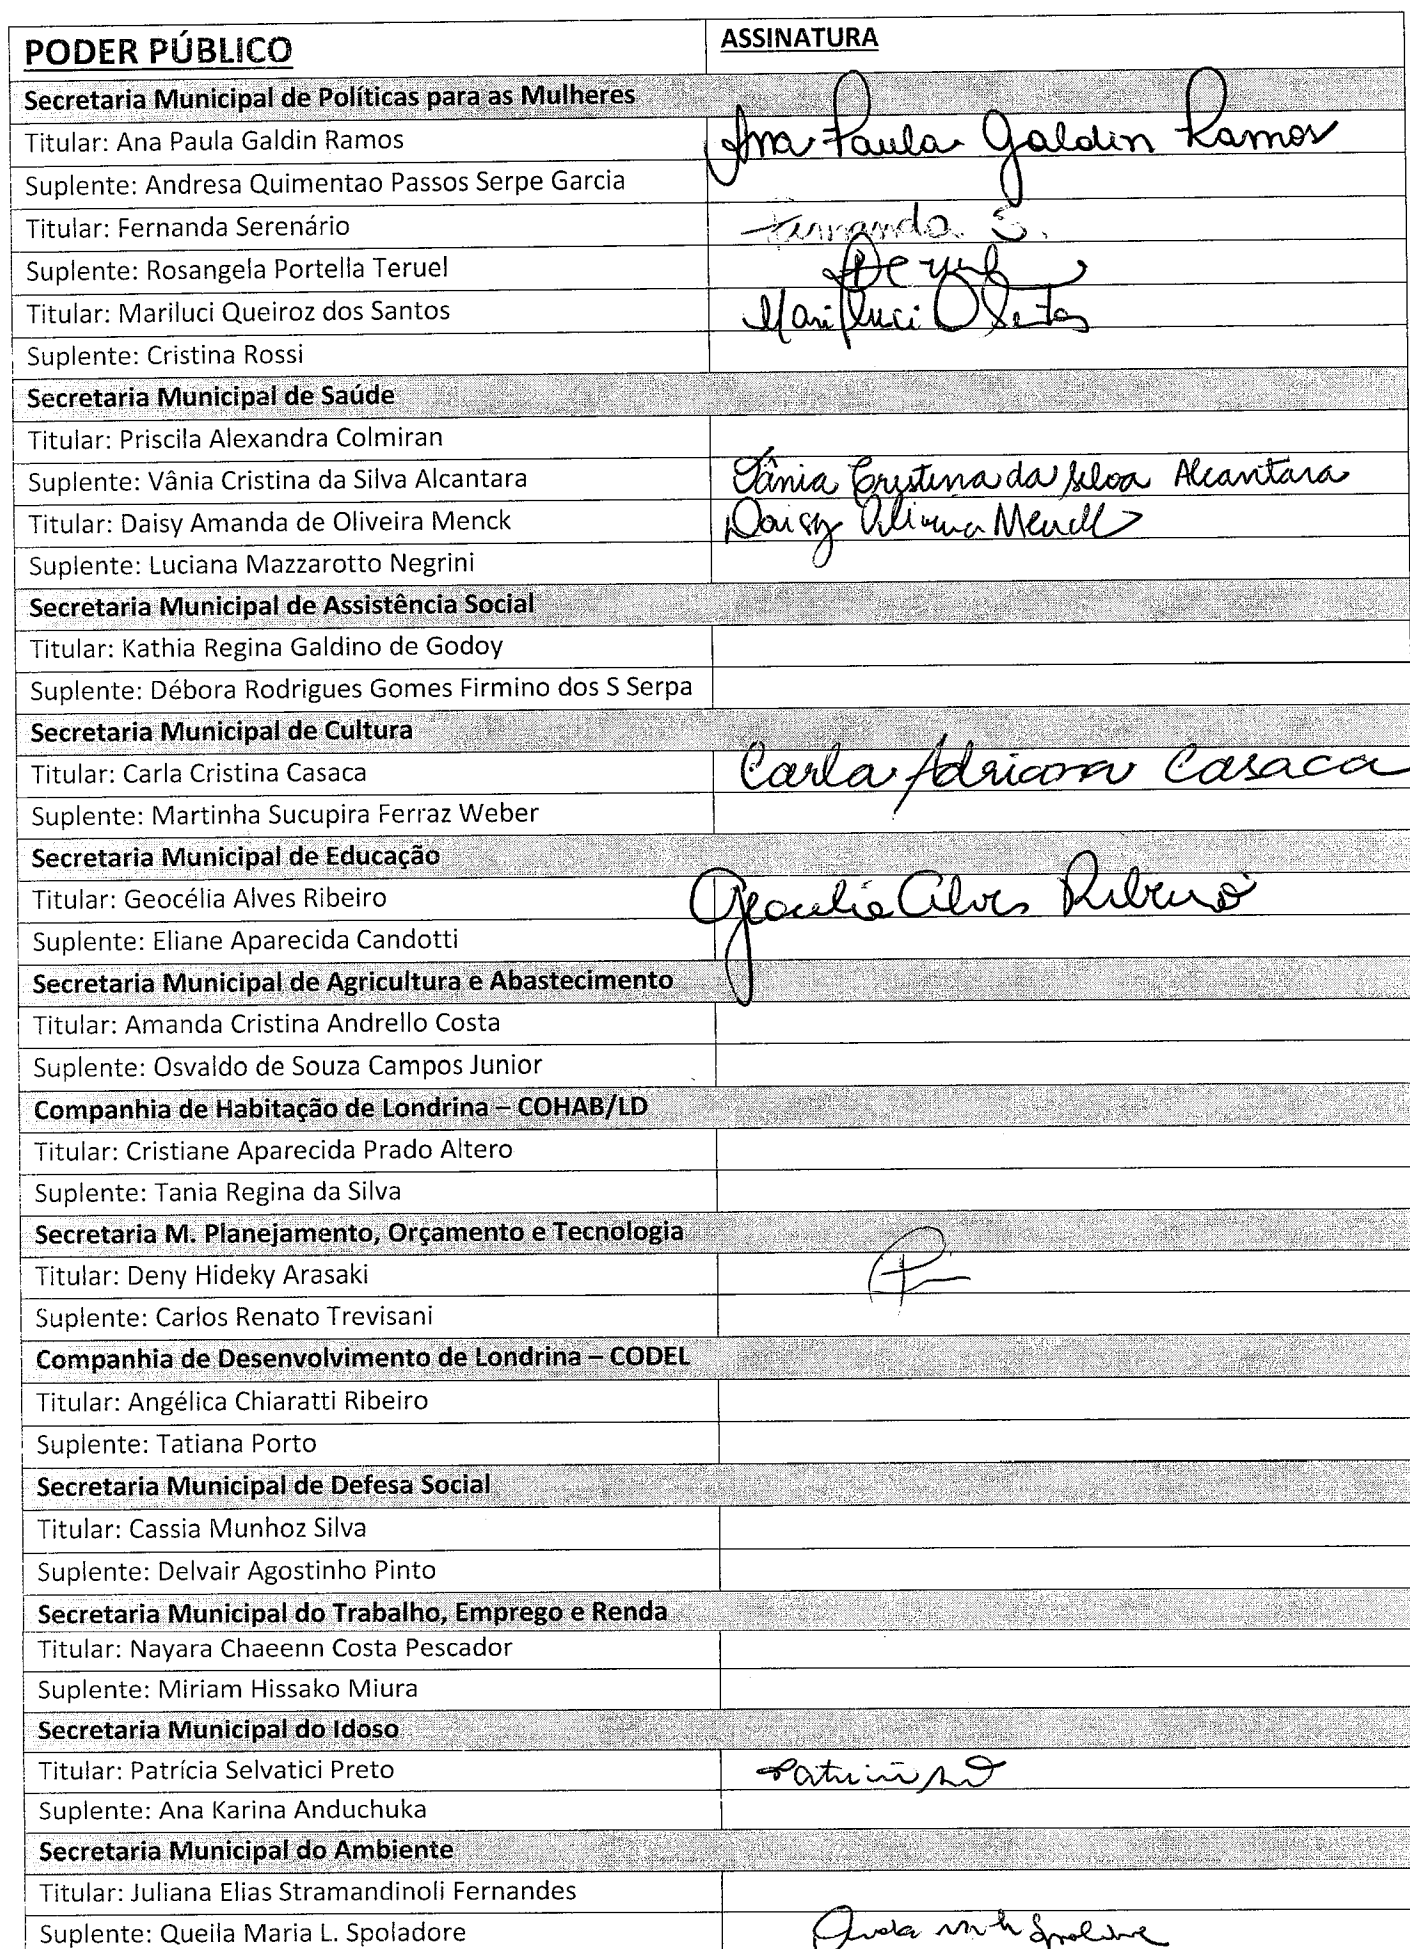 PODER PÚBLICO ASSINATURA
Secretaria Municipal de Políticas para as Mulheres
Titular: Ana Paula Galdin Ramos Ana Paula Galdin Ramos
Suplente: Andresa Quimentao Passos Serpe Garcia
Titular: Fernanda Serenário Fernanda S.
Suplente: Rosangela Portella Teruel
Titular: Mariluci Queiroz dos Santos Mariluci
Suplente: Cristina Rossi
Secretaria Municipal de Saúde
Titular: Priscila Alexandra Colmiran
Suplente: Vânia Cristina da Silva Alcantara Vânia Cristina da Silva Alcantara
Titular: Daisy Amanda de Oliveira Menck Daisy Oliveira Menck
Suplente: Luciana Mazzarotto Negrini
Secretaria Municipal de Assistência Social
Titular: Kathia Regina Galdino de Godoy
Suplente: Débora Rodrigues Gomes Firmino dos S Serpa
Secretaria Municipal de Cultura
Titular: Carla Cristina Casaca Carla Adriana Casaca
Suplente: Martinha Sucupira Ferraz Weber
Secretaria Municipal de Educação
Titular: Geocélia Alves Ribeiro Geocélia Alves Ribeiro
Suplente: Eliane Aparecida Candotti
Secretaria Municipal de Agricultura e Abastecimento
Titular: Amanda Cristina Andrello Costa
Suplente: Osvaldo de Souza Campos Junior
Companhia de Habitação de Londrina – COHAB/LD
Titular: Cristiane Aparecida Prado Altero
Suplente: Tania Regina da Silva
Secretaria M. Planejamento, Orçamento e Tecnologia
Titular: Deny Hideky Arasaki
Suplente: Carlos Renato Trevisani
Companhia de Desenvolvimento de Londrina – CODEL
Titular: Angélica Chiaratti Ribeiro
Suplente: Tatiana Porto
Secretaria Municipal de Defesa Social
Titular: Cassia Munhoz Silva
Suplente: Delvair Agostinho Pinto
Secretaria Municipal do Trabalho, Emprego e Renda
Titular: Nayara Chaeenn Costa Pescador
Suplente: Miriam Hissako Miura
Secretaria Municipal do Idoso
Titular: Patrícia Selvatici Preto
Suplente: Ana Karina Anduchuka
Secretaria Municipal do Ambiente
Titular: Juliana Elias Stramandinoli Fernandes
Suplente: Queila Maria L. Spoladore